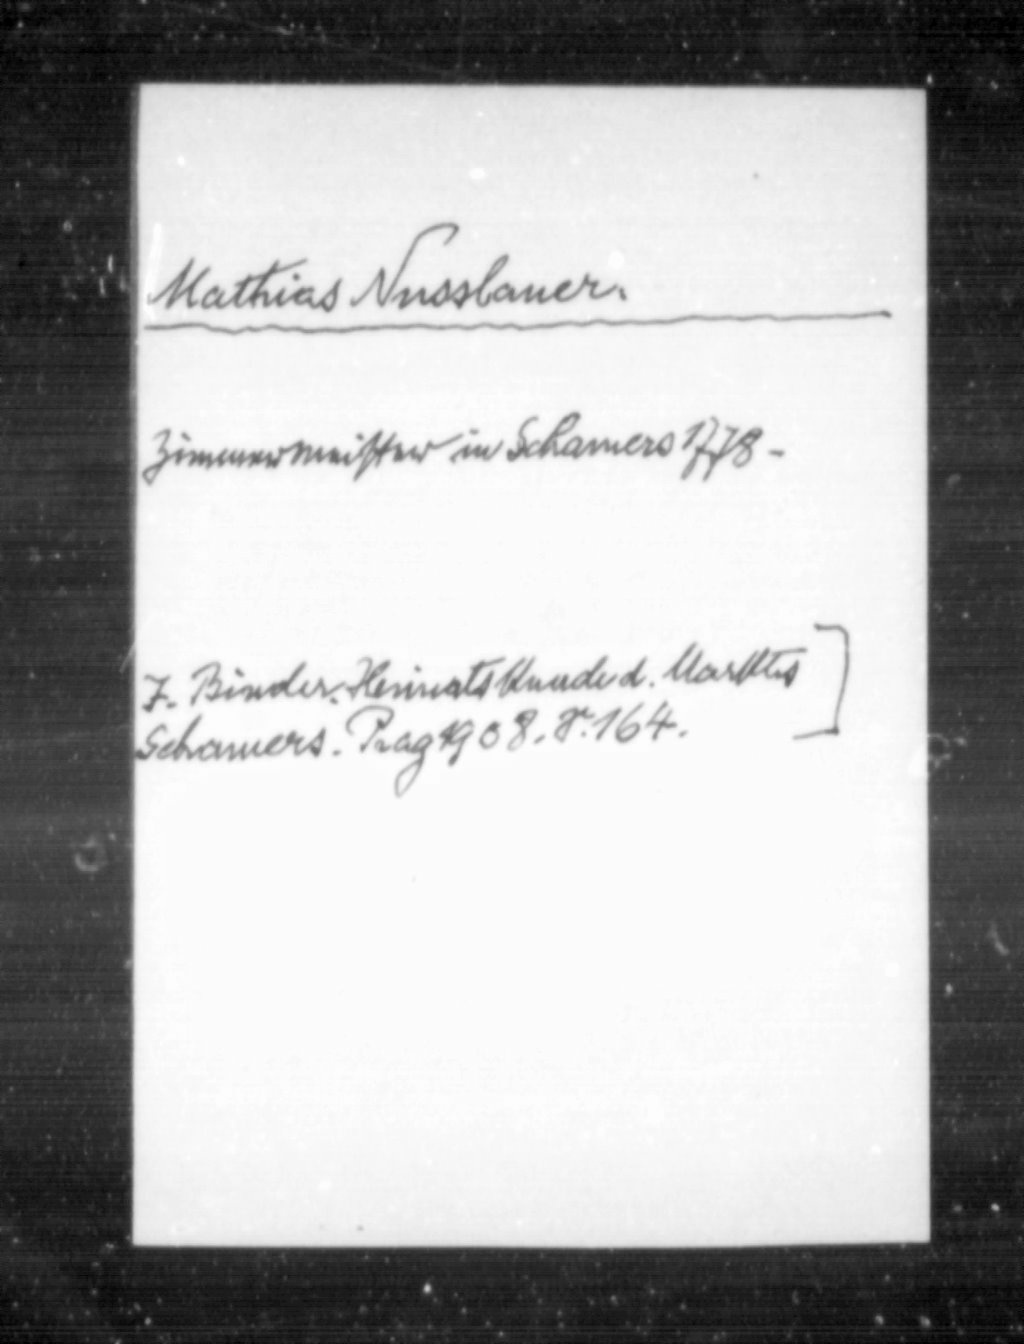 Mathias Nussbauer.
Zimmermeister in Schamers 1778 -
J. Binder. Heimatskunde d. Marktes
Schamers. Prag 1908. S. 164.]